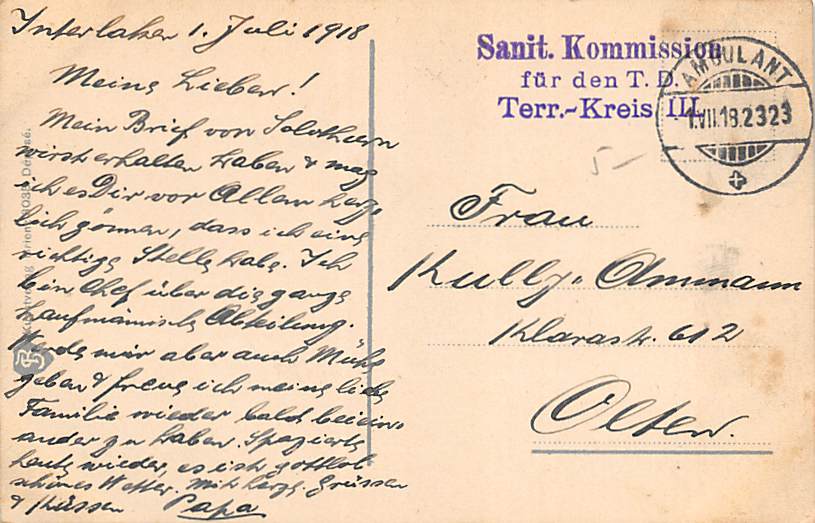 Interlaken 1. Juli 1918
Meine Lieben!
Mein Brief von Solothurn
wirst erhalten haben & mag
ich es Dir vor Allem herz-
lich gönnen, dass ich eine
richtige Stelle habe. Ich
bin Chef über die ganze
kaufmännische Abteilung.
Werde mir aber auch Mühe
geben & freue ich meine liebe
Familie wieder bald beiein-
ander zu haben. Spazierte
heute wieder, es ist gottlob
schönes Wetter. Mit herzl. Grüssen
& Küssen Papa
Sanit. Kommission
für den T. D.
Terr.-Kreis III
AMBULANT
1.VII.18.2323
5-
Frau
Kully-Ammann
Klarastr. 612
Olten.